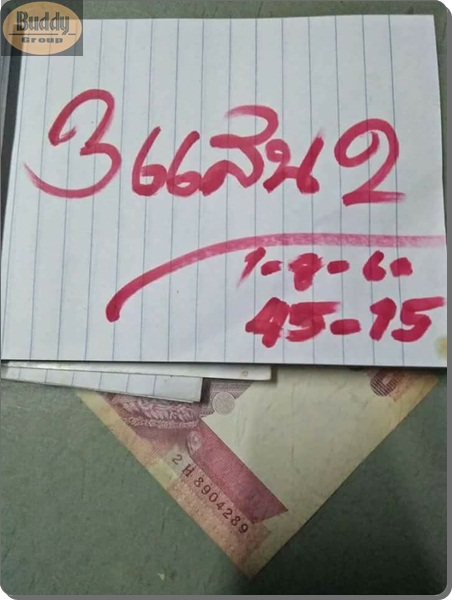 Buddy
Group
3แสน 2
1-7-6-
45-15
2 H 8904289